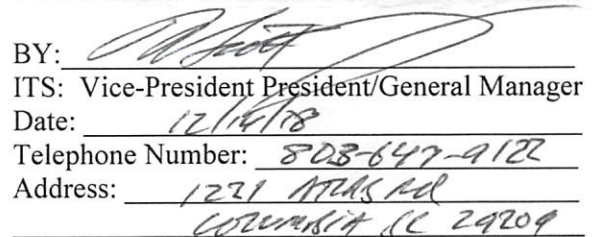 BY:
ITS: Vice-President President/General Manager
Date: 12/14/18
Telephone Number: 803-647-9122
Address: 1221 ATLAS Rd
COLUMBIA SC 29209